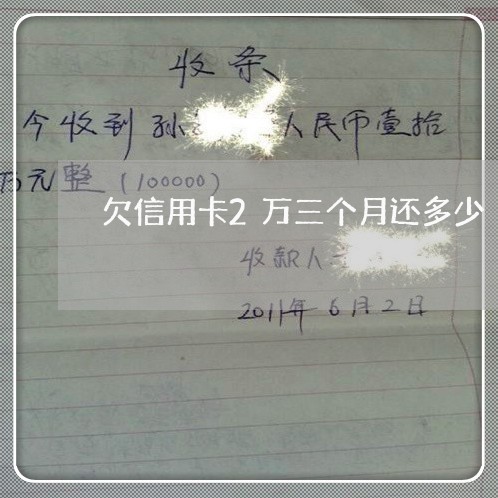 收条
今收到孙 人民币壹拾
万元整(100000)
欠信用卡2 万三个月还多少
收款人
2011年6月2日